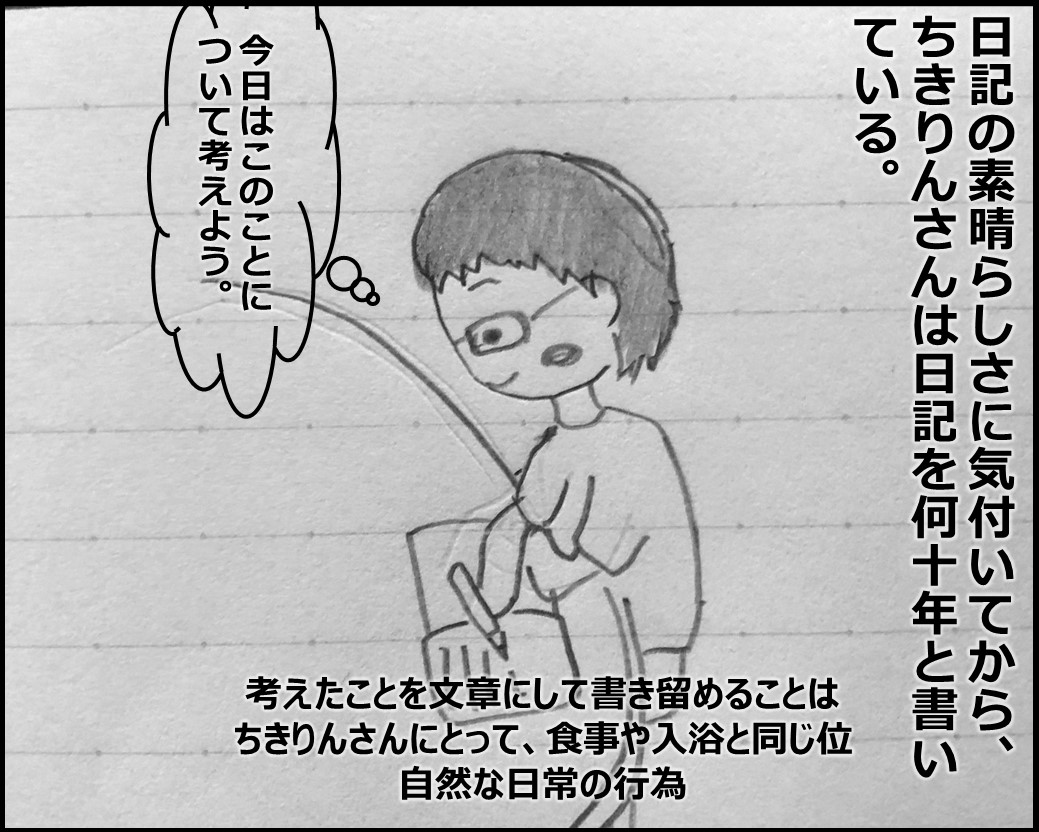 日記の素晴らしさに気付いてから、
ちきりんさんは日記を何十年と書い
ている。
今日はこのことに
ついて考えよう。
考えたことを文章にして書き留めることは
ちきりんさんにとって、食事や入浴と同じ位
自然な日常の行為